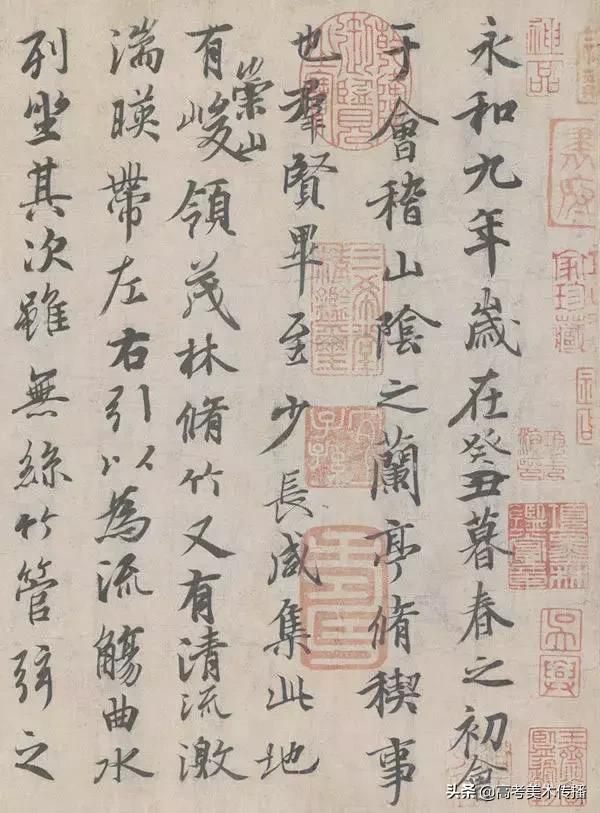 神品
永和九年歲在癸丑暮春之初會
于會稽山陰之蘭亭脩稧事
也羣賢畢至少長咸集此地
有崇山峻領茂林脩竹又有清流激
湍暎帶左右引以為流觴曲水
列坐其次雖無絲竹管弦之
三希堂精鑑璽
宜子孫
吳興
头条 @高考美术传播